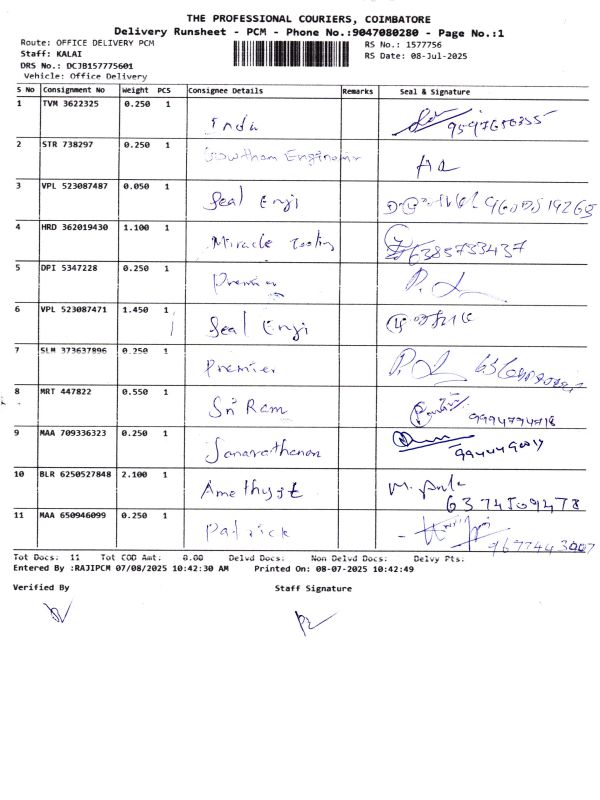 THE PROFESSIONAL COURIERS, COIMBATORE
Delivery Runsheet - PCM - Phone No.:9047080280 - Page No.:1
Route: OFFICE DELIVERY PCM
Staff: KALAI
DRS No.: DCJB157775601
Vehicle: Office Delivery
RS No.: 1577756
RS Date: 08-Jul-2025
S No Consignment No Weight PCS Consignee Details Remarks Seal & Signature
1 TVM 3622325 0.250 1 Indu
2 STR 738297 0.250 1 Gowtham Engineering
3 VPL 523087487 0.050 1 Seal Engi
4 HRD 362019430 1.100 1 Miracle Tooling 6385733437
5 DPI 5347228 0.250 1 Premier
6 VPL 523087471 1.450 1 Seal Engi
7 SLM 373637896 0.250 1 Premier
8 MRT 447822 0.550 1 Sri Ram 9994794718
9 MAA 709336323 0.250 1
10 BLR 6250527848 2.100 1 Amethyst 6374509478
11 MAA 650946099 0.250 1 Patrick 9697443007
Tot Docs: 11 Tot COD Amt: 0.00 Delvd Docs: Non Delvd Docs: Delvy Pts:
Entered By :RAJIPCM 07/08/2025 10:42:30 AM Printed On: 08-07-2025 10:42:49
Verified By Staff Signature